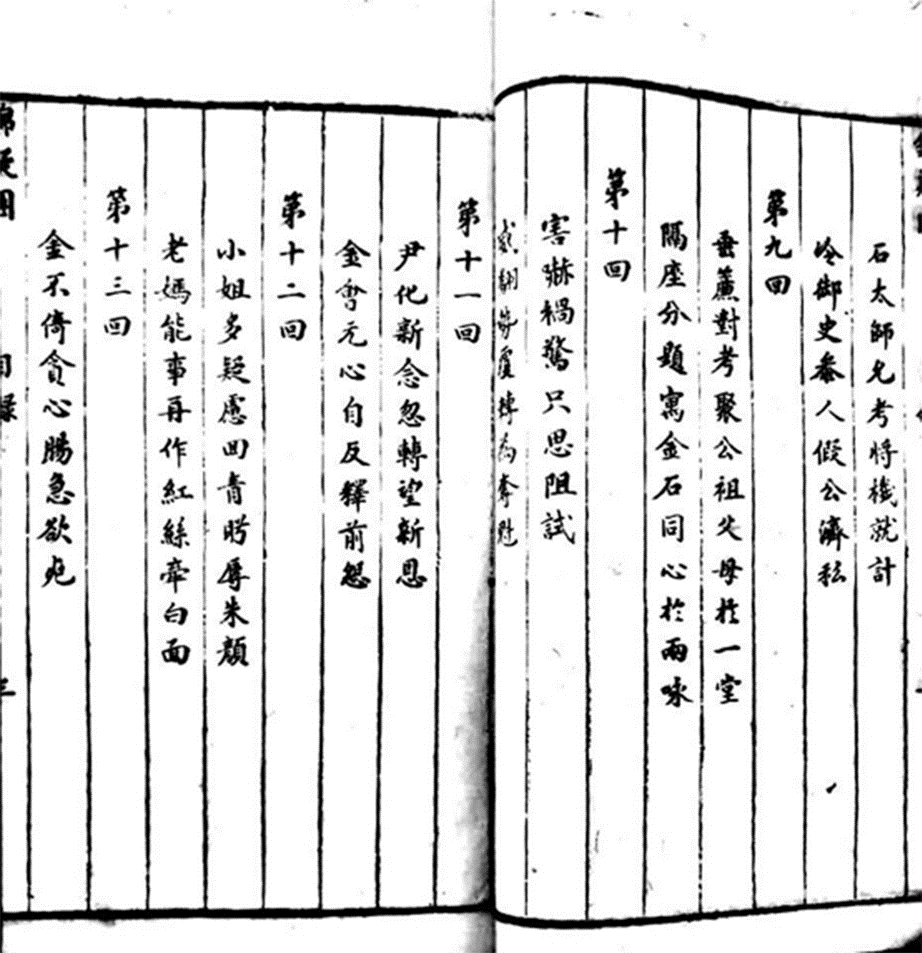 石太師允考將機就計
冷御史參人假公濟私
第九回
垂簾對考聚公祖父母於一堂
隔座分題寓金石同心於兩咏
第十回
害嚇禍驚只思阻試
翻雲覆轉為奪魁
第十一回
尹化新念忽轉望新恩
金會元心自反釋前怨
第十二回
小姐多疑慮回青眸辱朱顏
老媽能事再作紅絲牽白面
第十三回
金不倚貪心腸急欲兎
目錄
三